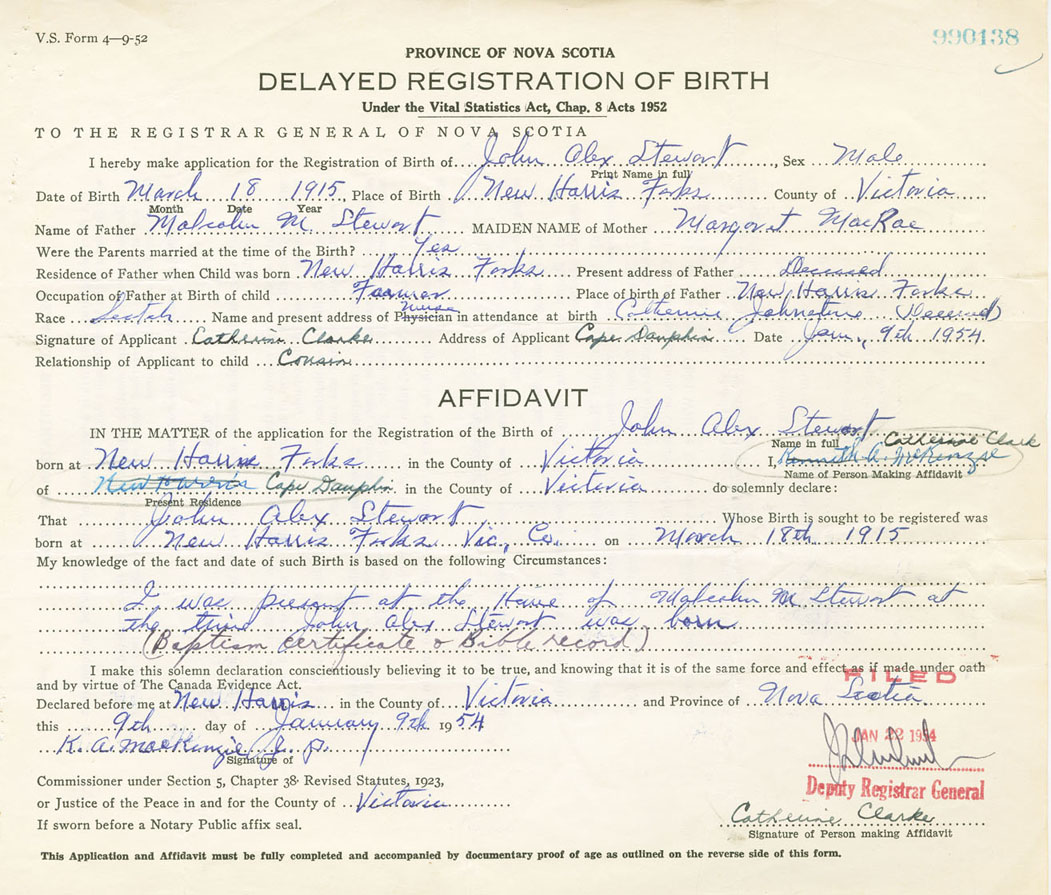 V.S. Form 4—9-52
990138
PROVINCE OF NOVA SCOTIA
DELAYED REGISTRATION OF BIRTH
Under the Vital Statistics Act, Chap. 8 Acts 1952
TO THE REGISTRAR GENERAL OF NOVA SCOTIA
I hereby make application for the Registration of Birth of John Alex Stewart, Sex Male
Print Name in full
Date of Birth March 18 1915, Place of Birth New Harris Forks County of Victoria
Month Date Year
Name of Father Malcolm M. Stewart MAIDEN NAME of Mother Margaret MacRae
Were the Parents married at the time of the Birth? Yes
Residence of Father when Child was born New Harris Forks Present address of Father Deceased
Occupation of Father at Birth of child Farmer Place of birth of Father New Harris Forks
Nurse
Race Scotch Name and present address of Physician in attendance at birth Catherine Johnstone (Deceased)
Signature of Applicant Catherine Clarke Address of Applicant Cape Dauphin Date Jan., 9th 1954
Relationship of Applicant to child Cousin
AFFIDAVIT
IN THE MATTER of the application for the Registration of the Birth of John Alex Stewart
Name in full Catherine Clark
born at New Harris Forks in the County of Victoria I, Kenneth A. McKenzie
Name of Person Making Affidavit
of New Harris Cape Dauphin in the County of Victoria do solemnly declare:
Present Residence
That John Alex Stewart Whose Birth is sought to be registered was
born at New Harris Forks Vic., Co. on March 18th 1915
My knowledge of the fact and date of such Birth is based on the following Circumstances:
I was present at the Home of Malcolm M. Stewart at
the time John Alex Stewart was born
(Baptism certificate & Bible record)
I make this solemn declaration conscientiously believing it to be true, and knowing that it is of the same force and effect as if made under oath
and by virtue of The Canada Evidence Act.
FILED
Declared before me at New Harris in the County of Victoria and Province of Nova Scotia
this 9th day of January 9th 1954
JAN 22 1954
K. A. MacKenzie J. P.
Signature of
Commissioner under Section 5, Chapter 38 Revised Statutes, 1923,
Deputy Registrar General
or Justice of the Peace in and for the County of Victoria
Catherine Clarke
If sworn before a Notary Public affix seal.
Signature of Person making Affidavit
This Application and Affidavit must be fully completed and accompanied by documentary proof of age as outlined on the reverse side of this form.